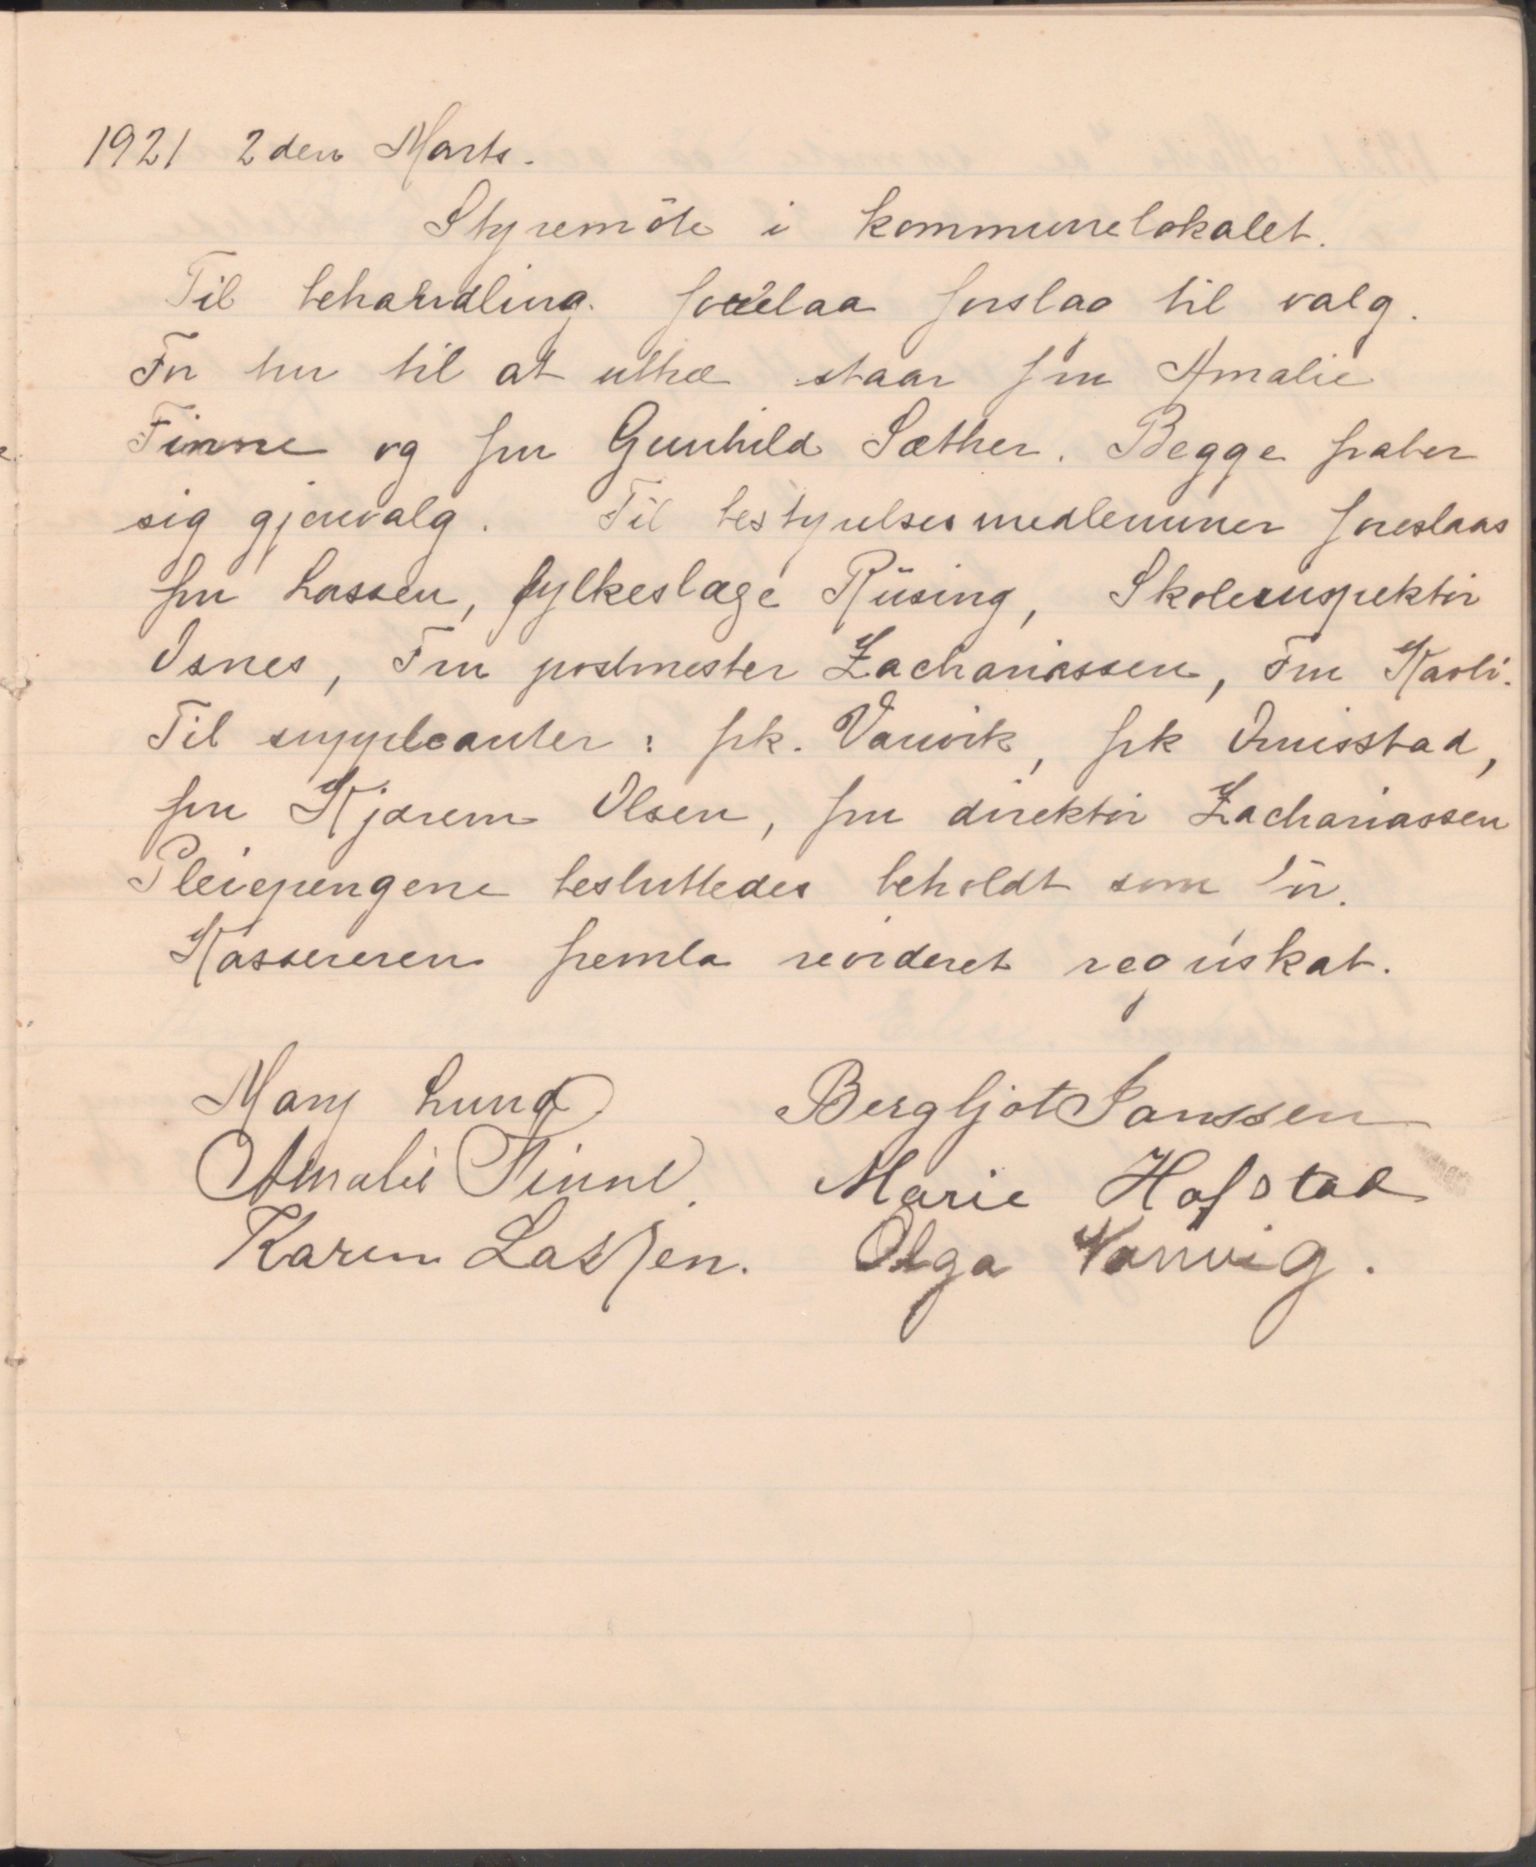 1921 2den Marts.
Styremöte i kommunelokalet.
Til behandling forelaa forslag til valg.
For tur til at uttræ staar fru Amalie
Finne og fru Gunhild Sæther. Begge fraber
sig gjenvalg. Til bestyrelsesmedlemmer foreslaas
fru Lassen, fylkeslæge Rüsing, Skoleinspektör
Osnes, Fru postmester Zachariassen, Fru Karoli.
Til suppleanter: frk. Vanvik, frk Omsstad,
fru Kjærem Olsen, fru direktör Zachariassen
Pleiepengene besluttedes beholdt som för.
Kassereren fremla revideret regnskat.
Mary Lund Bergljot Janssen
Amalie Finne. Marie Hofstad
Karen Lassen. Olga Vanvig.